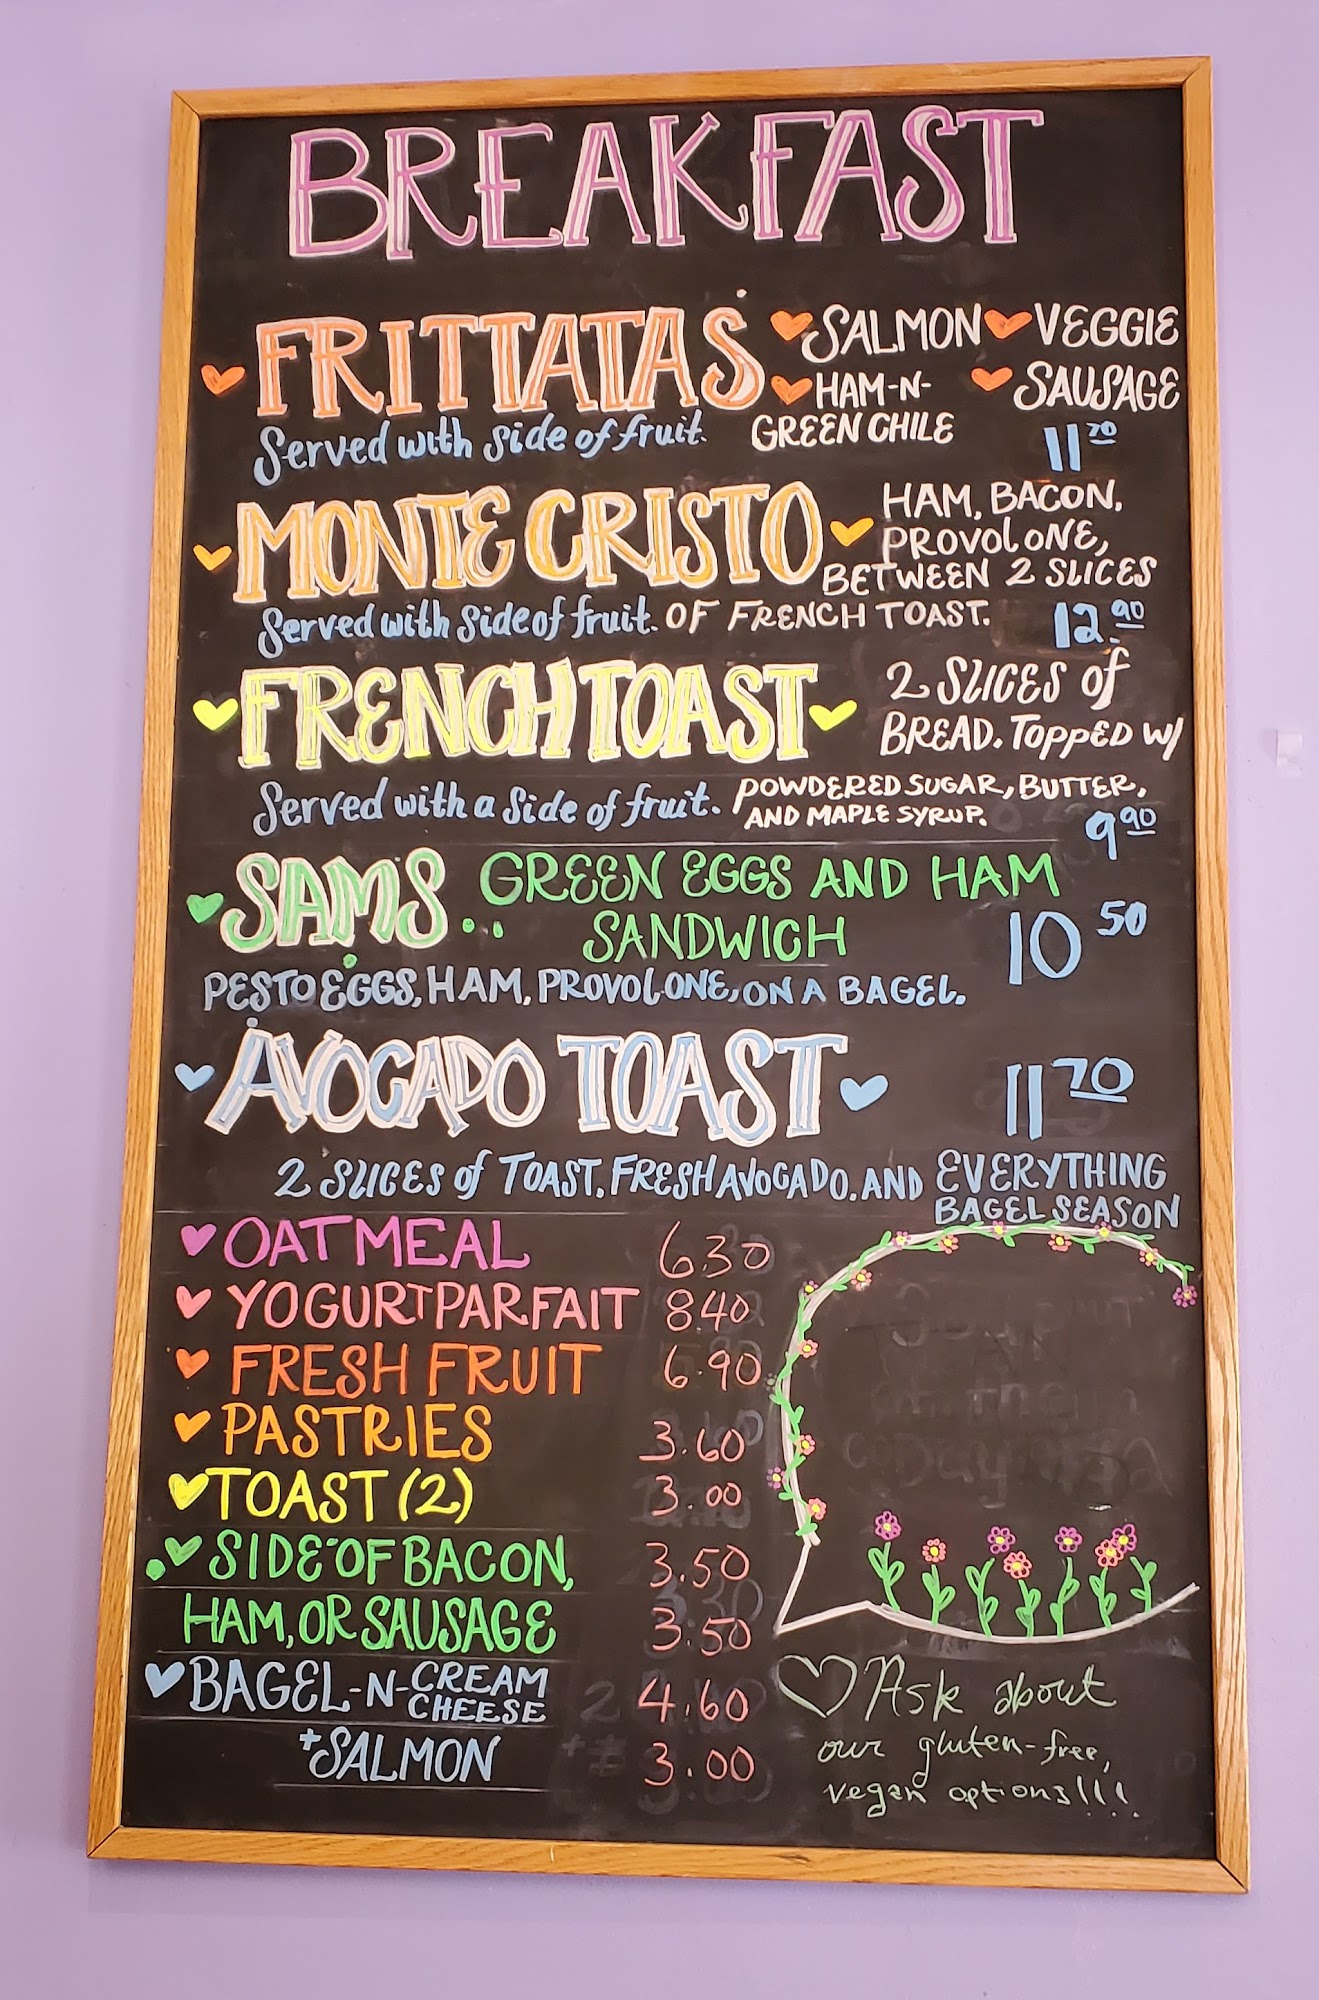 BREAKFAST
FRITTATAS
SALMON VEGGIE
HAM-N- SAUSAGE
GREEN CHILE
Served with side of fruit. 11.70
MONTE CRISTO
HAM, BACON,
PROVOLONE,
BETWEEN 2 SLICES
OF FRENCH TOAST.
Served with side of fruit. 12.90
FRENCH TOAST
2 SLICES of
BREAD. TOPPED W/
POWDERED SUGAR, BUTTER,
AND MAPLE SYRUP.
Served with a side of fruit. 9.90
SAMS.. GREEN EGGS AND HAM
SANDWICH 10 50
PESTO EGGS, HAM, PROVOLONE, ON A BAGEL.
AVOCADO TOAST 11 70
2 SLICES of TOAST. FRESH AVOCADO. AND EVERYTHING
BAGEL SEASON
OATMEAL 6.30
YOGURT PARFAIT 8.40
FRESH FRUIT 6.90
PASTRIES 3.60
TOAST (2) 3.00
SIDE OF BACON, 3.50
HAM, OR SAUSAGE 3.50
BAGEL-N-CREAM CHEESE 4.60
+SALMON 3.00
Ask about
our gluten-free,
vegan options!!!